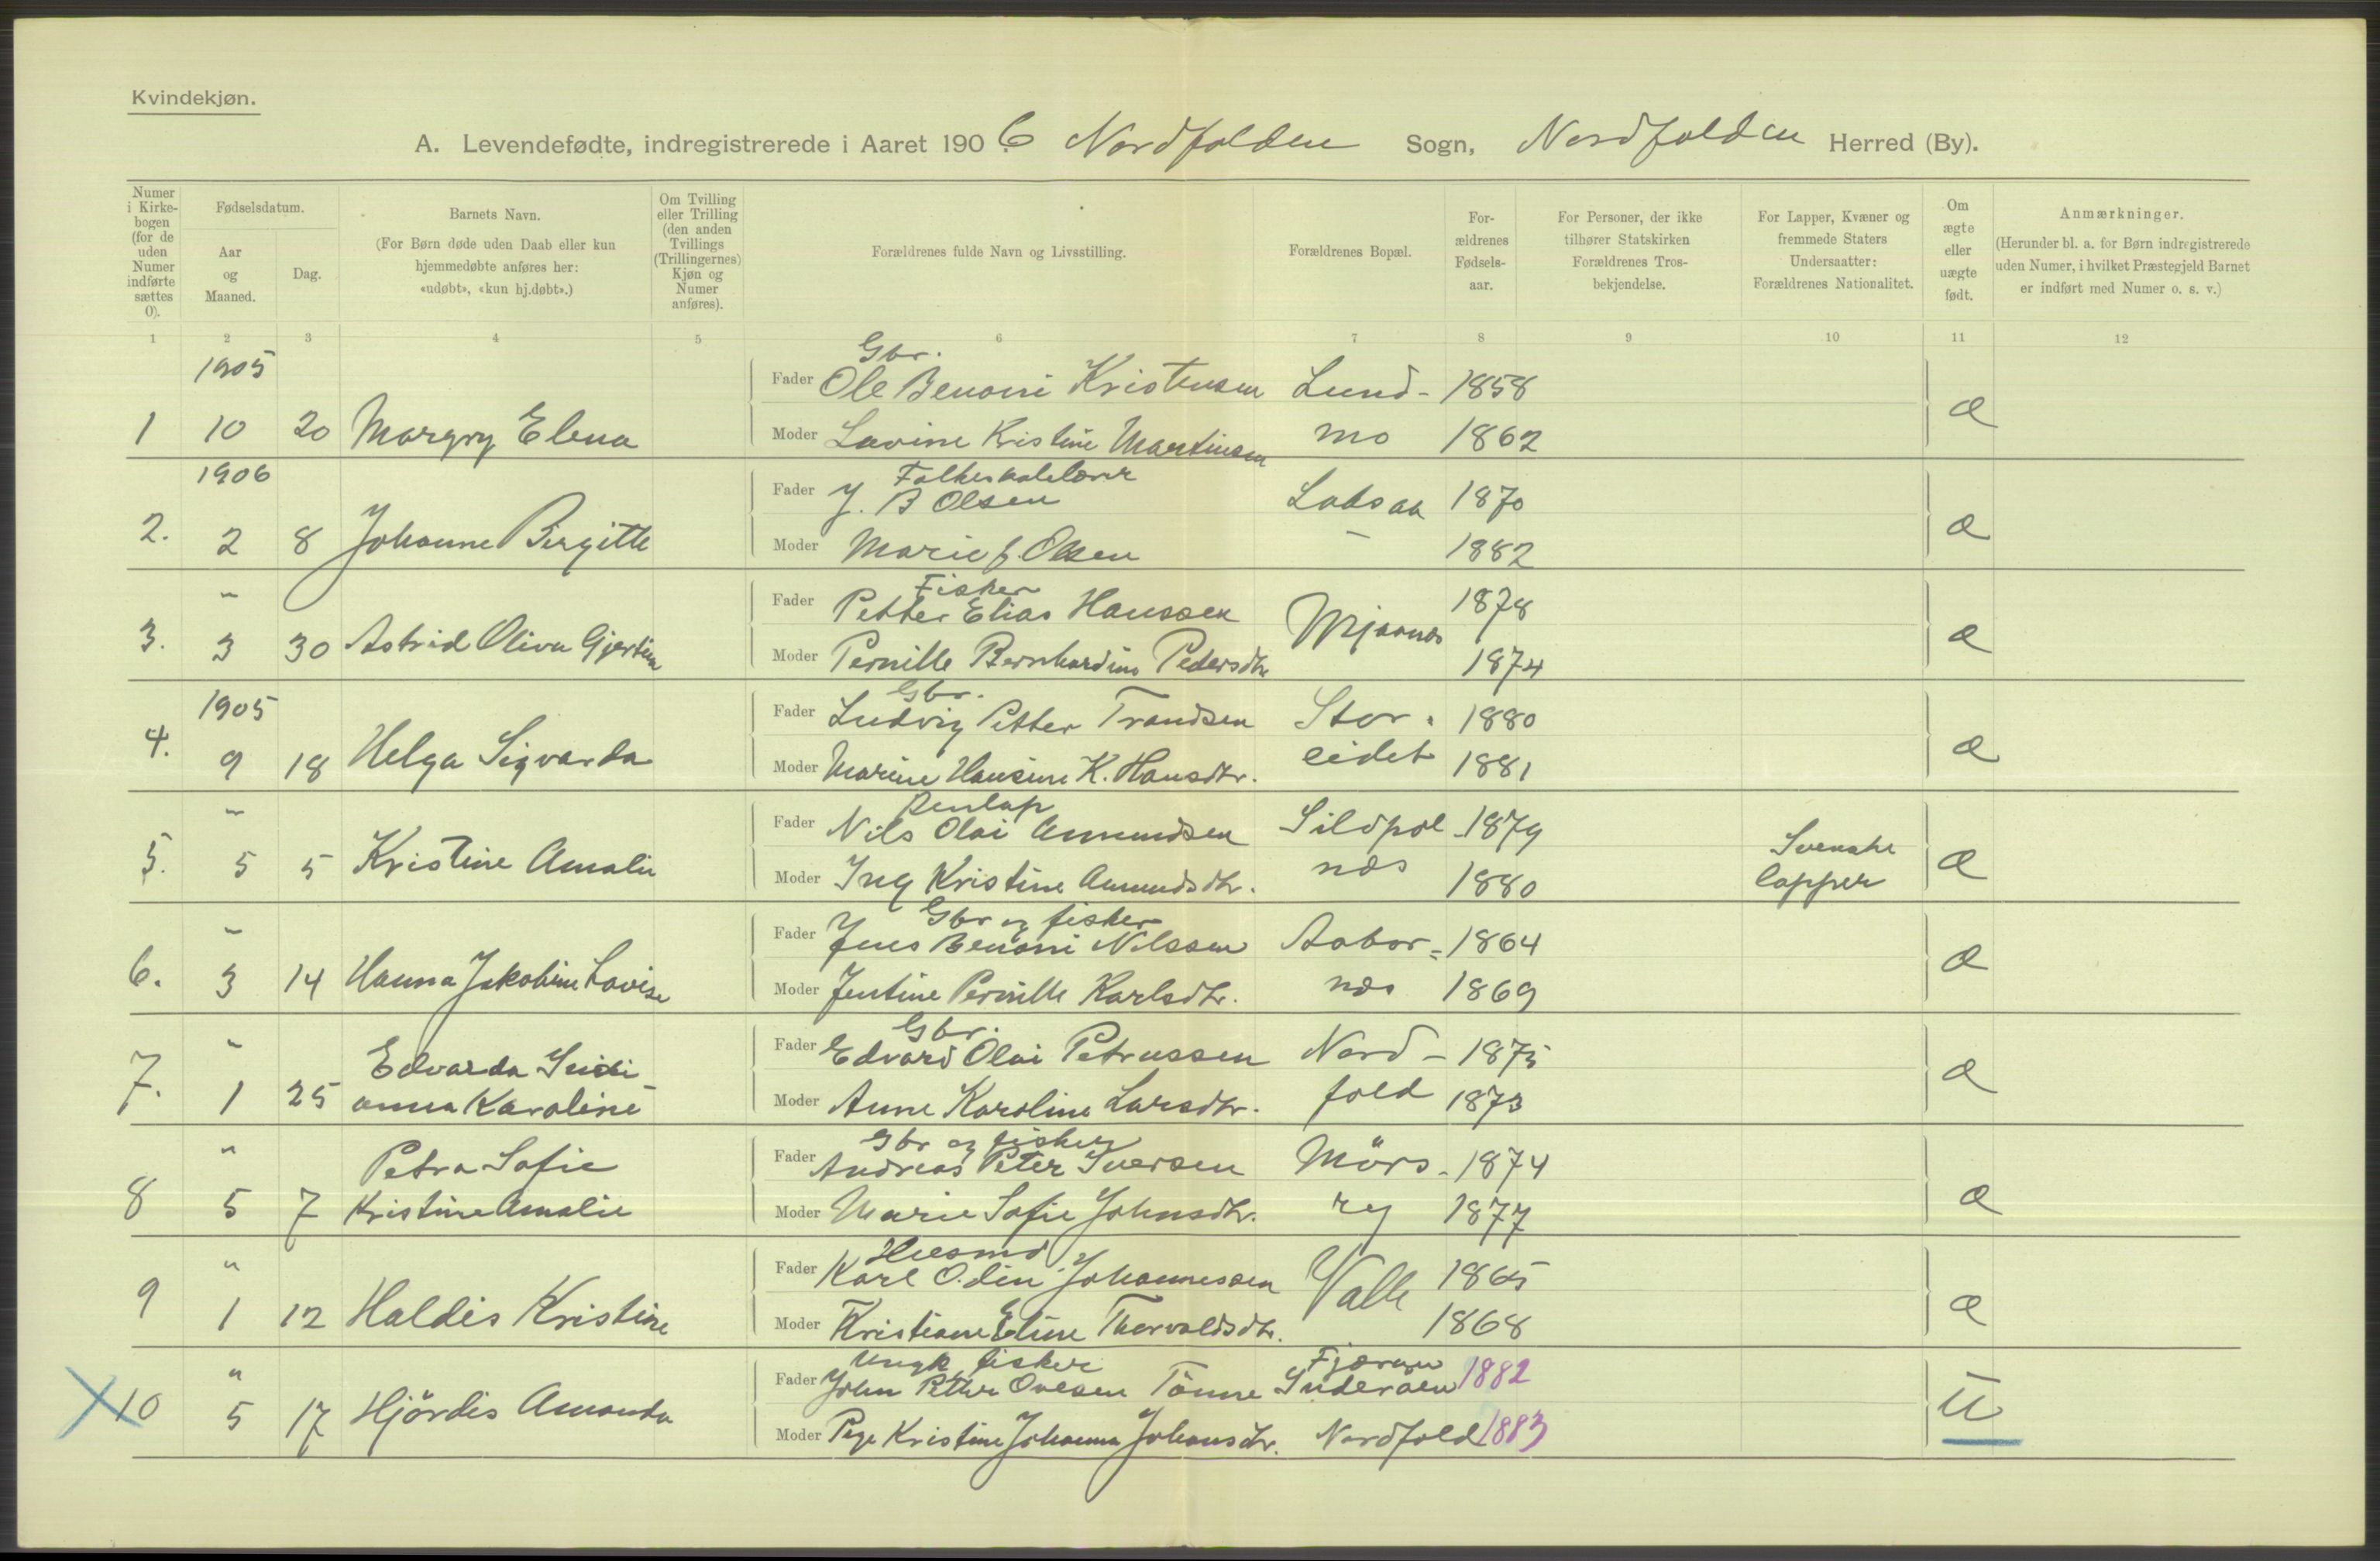 Kvindekjøn.
A. Levendefødte, indregistrerede i Aaret 1906 Nordfolden Sogn, Nordfolden Herred (By).
Numer i Kirkebogen (for de uden Numer indførte sættes 0).
Fødselsdatum.
Aar og Maaned.
Dag.
Barnets Navn.
(For Børn døde uden Daab eller kun hjemmedøbte anføres her: «udøbt», «kun hj.døbt».)
Om Tvilling eller Trilling (den anden Tvillings (Trillingernes) Kjøn og Numer anføres).
Forældrenes fulde Navn og Livsstilling.
Forældrenes Bopæl.
Forældrenes Fødselsaar.
For Personer, der ikke tilhører Statskirken Forældrenes Trosbekjendelse.
For Lapper, Kvæner og fremmede Staters Undersaatter: Forældrenes Nationalitet.
Om ægte eller uægte født.
Anmærkninger.
(Herunder bl. a. for Børn indregistrerede uden Numer, i hvilket Præstegjeld Barnet er indført med Numer o. s. v.)
1 2 3 4 5 6 7 8 9 10 11 12
1905 Gbr.
Fader Ole Benoni Kristensen Lund- 1858
1 10 20 Margry Elena Moder Lovine Kristine Martinsen mo 1862 æ
1906 Folkeskolelærer
Fader J. B Olsen Lodsaa 1870
2. 2 8 Johanne Birgitte Moder Marie J. Olsen – 1882 æ
" Fisker
Fader Petter Elias Hanssen Mjaanes 1878
3. 3 30 Astrid Oliva Gjertine Moder Pernille Bernhardine Pedersdtr 1874 æ
1905 Gbr.
Fader Ludvig Petter Trondsen Stor- 1880
4. 9 18 Helga Sigvarda Moder Marine Hansine K. Hansdtr. eidet 1881 æ
" Renlap
Fader Nils Olai Amundsen Sildpol- 1879 Svenske
5. 5 5 Kristine Amalie Moder Ing Kristine Amundsdtr. næs 1880 lapper æ
" Gbr og fisker
Fader Jens Benoni Nilssen Aabor= 1864
6. 3 14 Hanna Jakobine Lovise Moder Jentine Pernille Karlsdtr. næs 1869 æ
" Gbr.
Edvarda Fader Edvard Olai Petrussen Nord- 1875
7. 1 25 anna Karoline Moder Anne Karoline Larsdtr. fold 1873 æ
" Gbr og fisker
Petra Sofie Fader Andreas Peter Iversen Mörs- 1874
8 5 7 Kristine Amalie Moder Marie Sofie Johnsdtr. ry 1877 æ
" Husmd
Fader Karl Odin Johannessen Valle 1865
9 1 12 Haldis Kristine Moder Kristiane Eline Thorvaldsdtr. 1868 æ
" Ungk. fisker
Fader John Petter Ovesen Tönne Sinderöen 1882
10 5 17 Hjördis Amanda Moder Kristine Johanna Johansdtr. Nordfold 1883 U